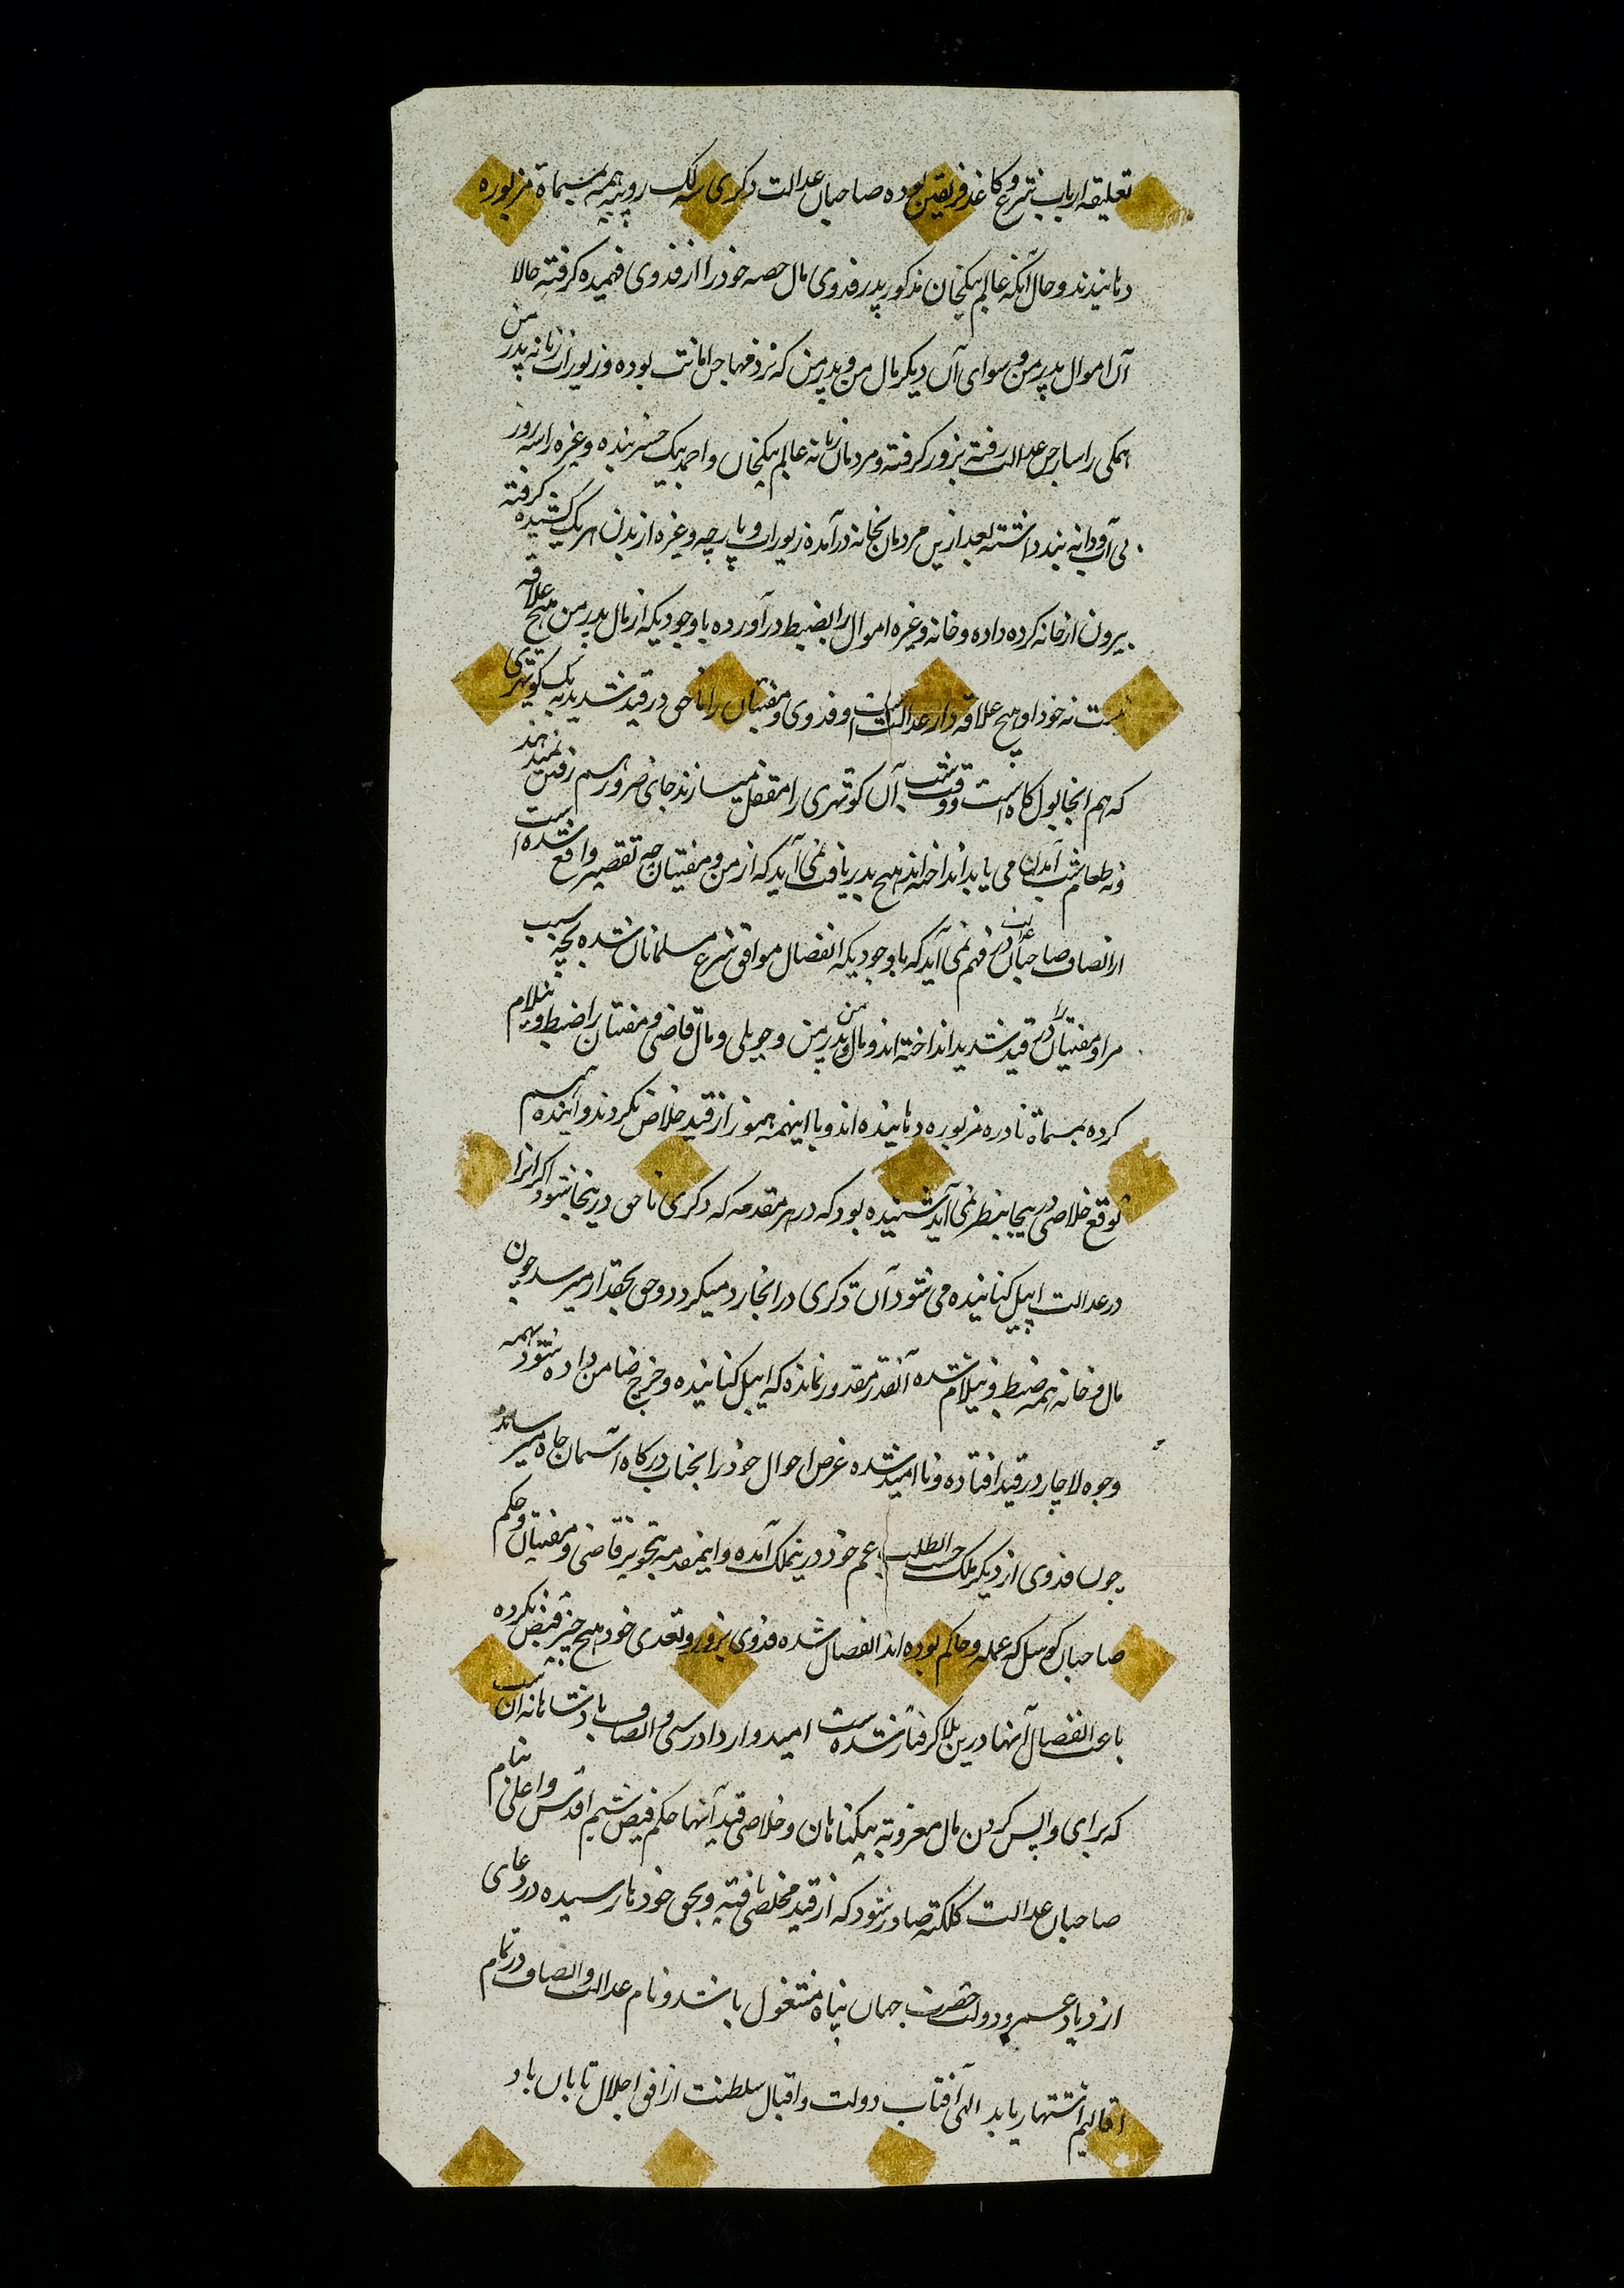 تعلیقه ارباب شرع و کاغذ فریقین بوده صاحبان عدالت دکری سه لک روپیه همه مسماة مزبوره
دهانیدند و حال آنکه عالم بیکخان مذکور پدر فدوی مال حصه خود را از فدوی فهمیده کرفته حالا
آن اموال پدر من و سوای آن دیکر مال من و پدر من که نزد مهاجن امانت بوده و زیورات زنانه پدر من
همکی را سارجن عدالت رفته بزور کرفته و مردمان زنانه عالم بیکخان و احمد بیک خسر بنده و غیره را سه روز
بی آب و دانه بند داشته بعد ازین مردمان بخانه درآمده زیورات و پارچه و غیره از بدن هریک کشیده کرفته
بیرون از خانه کرده داده و خانه و غیره اموال را بضبط درآورده باوجودیکه از مال پدر من هیچ علاقه
نیست نه خود او هیچ علاقه دار عدالت است و فدوی و مفتیان را ناحق در قید شدید به یک کوتهری
که هم انجا بول کاه است و وقت شب آن کوتهری را مقفل میسازند جای ضرور هم رفتن نمیدهند
و نه طعام شب آمدن می یابد انداخته اند هیچ بدریافت نمی آید که از من و مفتیان چه تقصیر واقع شده است
از انصاف صاحبان عدالت در فهم نمی آید که باوجودیکه انفصال موافق شرع مسلمانان شده بچه سبب
مرا و مفتیان را در قید شدید انداخته اند و مال من و پدر من و حویلی و مال قاضی و مفتیان را ضبط و نیلام
کرده بمسماة نادره مزبوره دهانیده اند و با اینهمه هنوز از قید خلاص نکردند و آینده هم
توقع خلاصی در پیجا بنظر نمی آید شنیده بود که در هر مقدمه که دکری ناحق درینجا شود اکر انرا
در عدالت اپیل کنانیده می شود آن دکری در انجا رد میکردد و حق بحقدار میرسد چون
مال و خانه همه ضبط و نیلام شده آنقدر مقدور نمانده که اپیل کنانیده و خرچ ضامن داده شود بهمه
وجوه لاچار در قید افتاده و ناامید شده عرض احوال خود را بجناب درکاه آسمان جاه میرساند
چون فدوی از دیکر ملک حسب الطلب عم خود درینملک آمده و اینمقدمه بتجویز قاضی و مفتیان و حکم
صاحبان کوسل که عمله و حاکم بوده اند انفصال شده فدوی بزور و تعدی خود هیچ چیز قبض نکرده
باعث انفصال آنها درین بلا کرفتار شده است امیدوار دادرسی و انصاف بادشاهانه انست
که برای واپس کردن مال مغروته بیکناهان و خلاصی قید آنها حکم فیض شیم اقدس و اعلی بنام
صاحبان عدالت کلکته صادر شود که از قید مخلصی یافته و بحق خودها رسیده در دعای
ازدیاد عمر و دولت حضرت جهان پناه مشغول باشد و نام عدالت و انصاف در تمام
اقالیم اشتهار یابد الهی آفتاب دولت و اقبال سلطنت از افق اجلال تابان باد